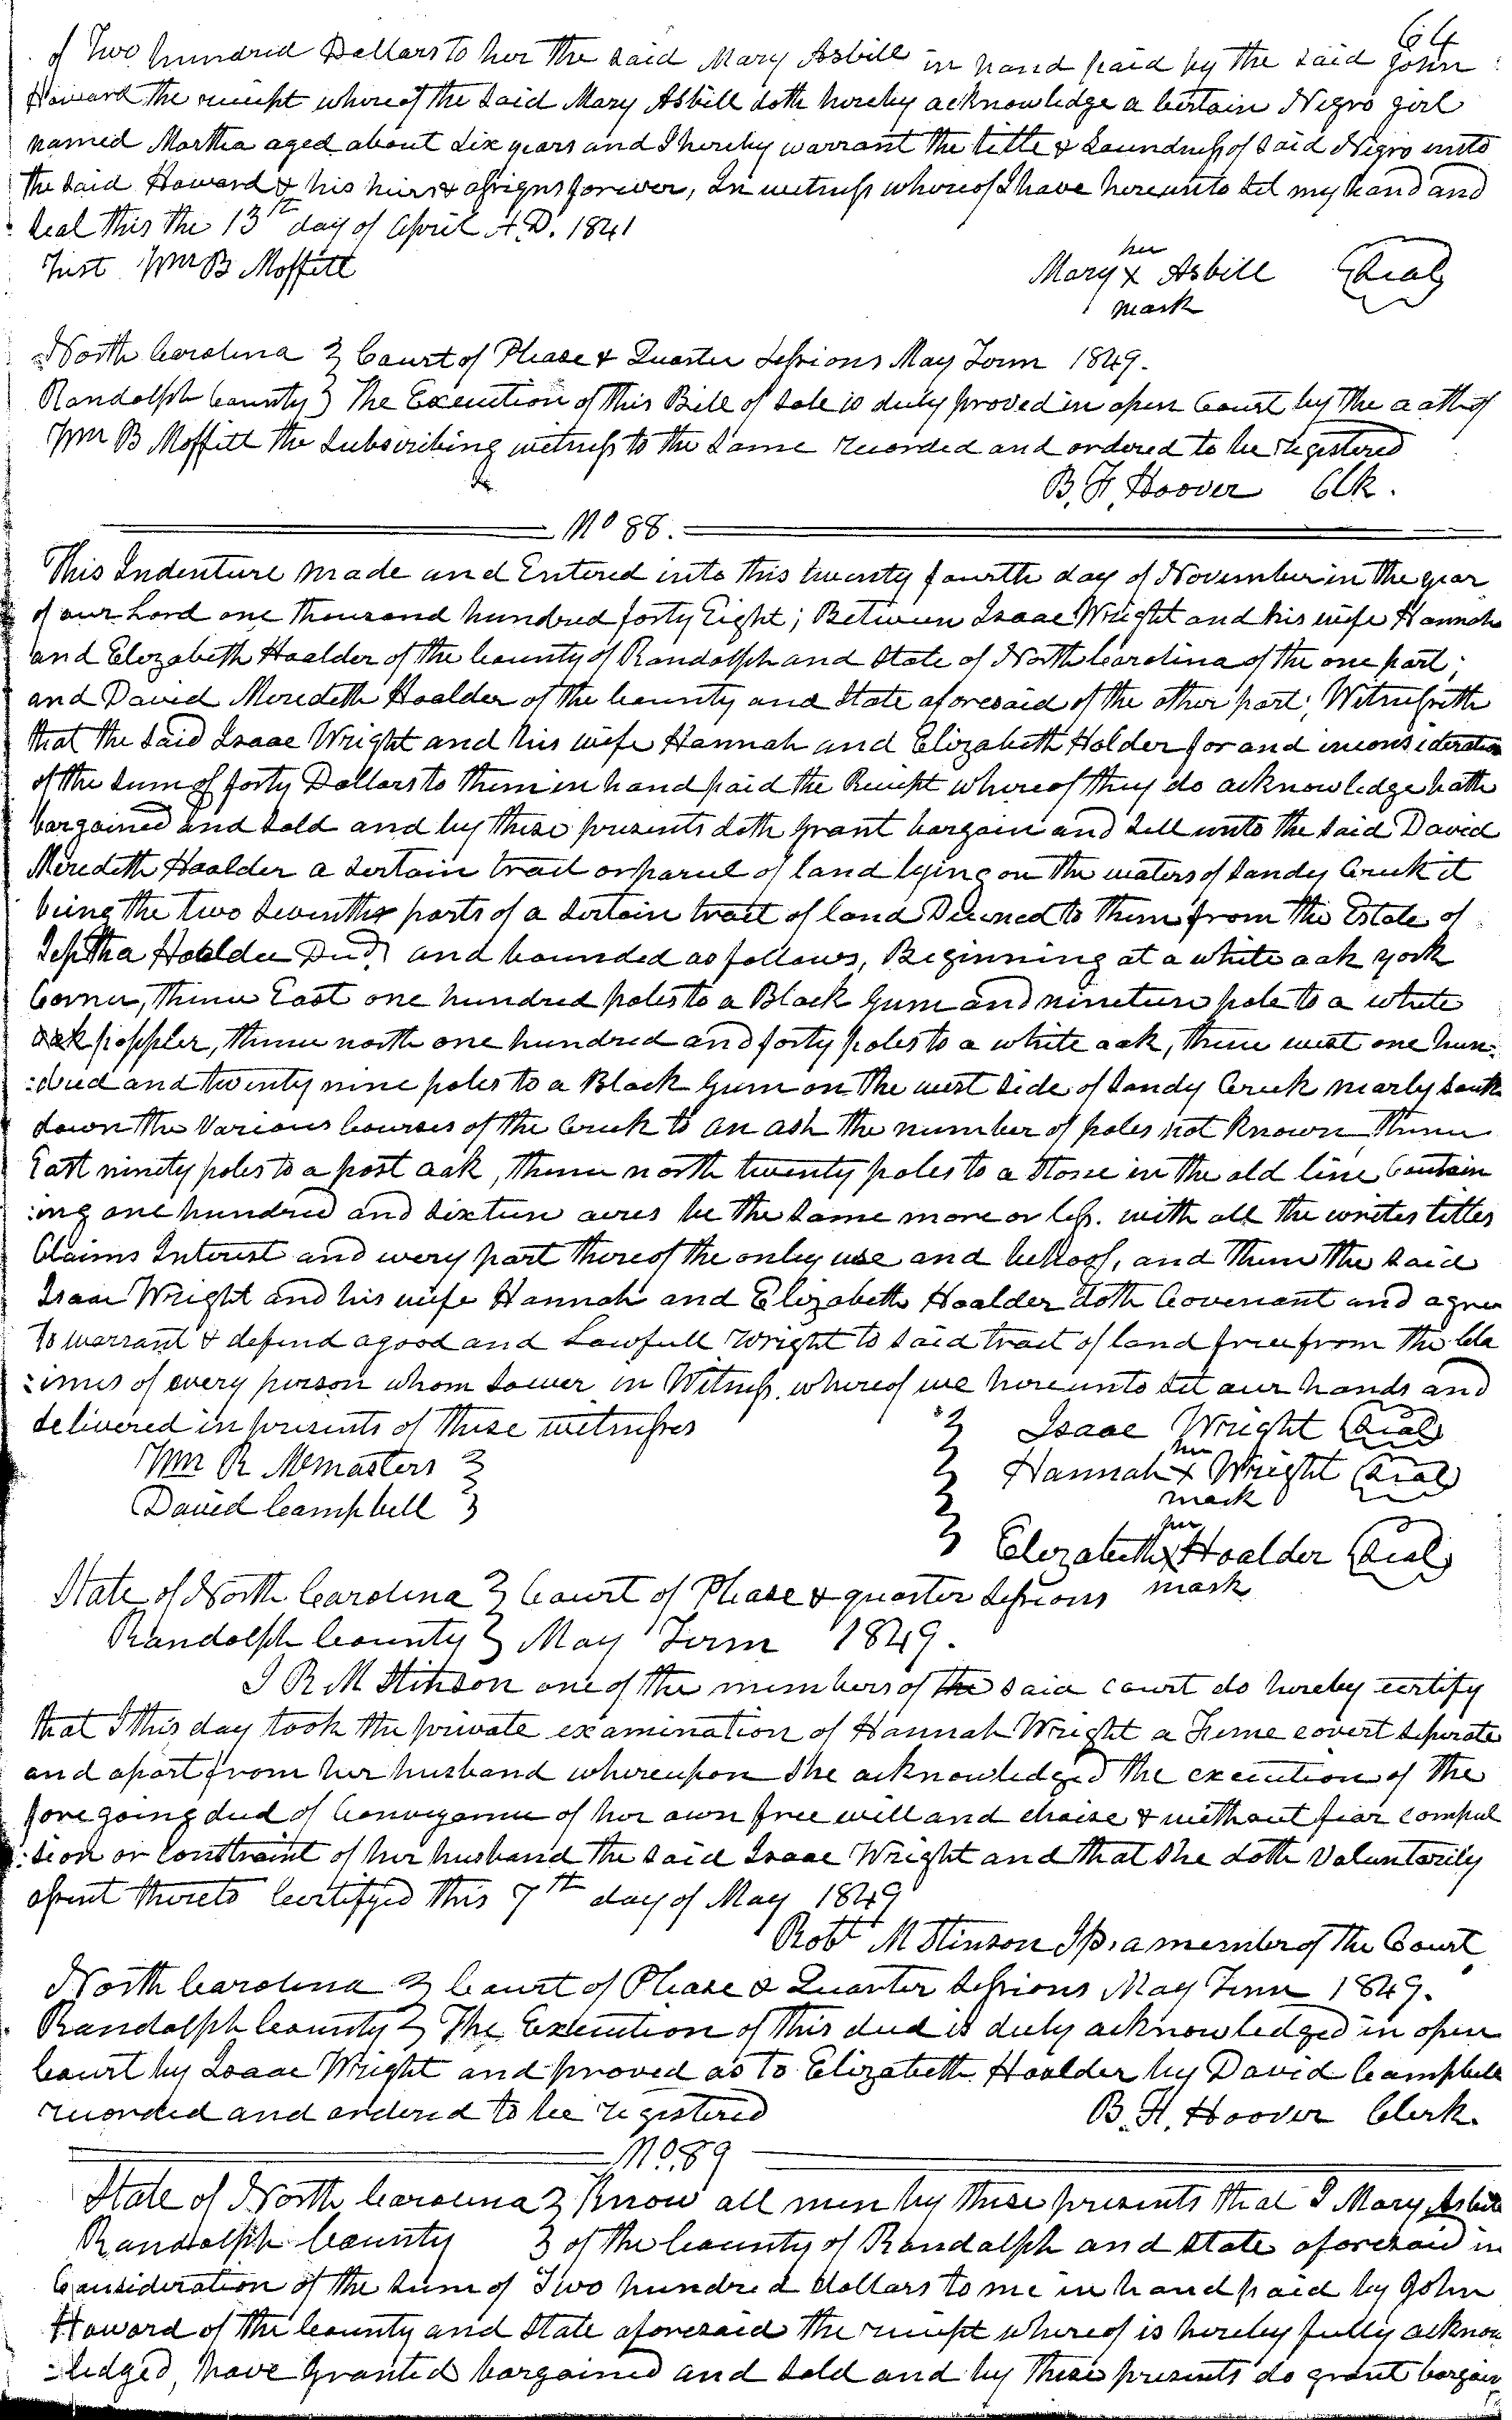 64
of Two hundrid Dollars to her the said Mary Asbill in hand paid by the said John
Howard the receipt whereof the said Mary Asbill doth hereby acknowledge a Certain Negro girl
named Martha aged about six years and I hereby warrant the title & Soundness of said Negro unto
the said Howard & his heirs & assigns forever, In witness whereof I have hereunto set my hand and
seal this the 13th day of April A.D. 1841
Test Wm B Moffitt
her
Mary X Asbill Seal
mark
North Carolina } Court of Please & Quarter Sessions May Term 1849.
Randolph County } The Execution of this Bill of Sale is duly proved in open Court by the oath of
Wm B Moffitt the Subscribing witness to the same recorded and ordered to be registered
B. F. Hoover Clk.
No 88.
This Indenture made and Entered into this twenty fourth day of November in the year
of our Lord one thousand hundred forty Eight; Between Isaac Wright and his wife Hannah
and Elizabeth Hoalder of the County of Randolph and State of North Carolina of the one part;
and David Merideth Hoalder of the County and State aforesaid of the other part; Witnesseth
that the said Isaac Wright and his wife Hannah and Elizabeth Holder for and in consideration
of the sum of forty Dollars to them in hand paid the Receipt whereof they do acknowledge hath
bargained and sold and by these presents doth grant bargain and sell unto the said David
Merideth Hoalder a sertain tract or parcel of land lying on the waters of Sandy Creek it
being the two Sevenths parts of a sertain tract of land Deemed to them from the Estate of
Jeptha Hoalder Decd and bounded as follows, Beginning at a white oak york
Corner, thence East one hundred poles to a Black Gum and nineteen pole to a white
oak poppler, thence north one hundred and forty poles to a white oak, thence west one hun:
:dred and twenty nine poles to a Black Gum on the west side of Sandy Creek nearly South
down the Various Courses of the Creek to an ash the number of poles not known thence
East ninety poles to a post oak, thence north twenty poles to a Stone in the old line Contain
:ing one hundred and sixteen acres be the same more or less. with all the writes titles
Claims Interest and every part thereof the only use and behoof, and them the said
Isaac Wright and his wife Hannah and Elizabeth Hoalder doth Covenant and agree
to warrant & defend a good and Lawfull Wright to said tract of land free from the Cla
:imes of every person whom soever in Witness whereof we hereunto set our hands and
delivered in presents of these witnesses
Wm R Mcmasters }
David Campbell }
Isaac Wright Seal
her
Hannah X Wright Seal
mark
her
Elizabeth X Hoalder Seal
mark
State of North Carolina } Court of Please & quarter Sessions
Randolph County } May Term 1849.
I R M Stinson one of the members of the said court do hereby certify
that I this day took the private examination of Hannah Wright a Feme covert seperate
and apart from her husband whereupon she acknowledged the execution of the
foregoing deed of Conveyance of her own free will and choise & without fear compul
:sion or constraint of her husband the said Isaac Wright and that she doth Voluntarily
assent thereto Certifyed this 7th day of May 1849
Robt M Stinson JP. a member of the Court
North Carolina } Court of Please & Quarter Sessions May Term 1849.
Randolph County } The Execution of this deed is duly acknowledged in open
Court by Isaac Wright and proved as to Elizabeth Hoalder by David Campbell
recorded and ordered to be registered
B. F. Hoover Clerk.
No. 89
State of North Carolina } Know all men by these presents that I Mary Asbill
Randolph County } of the County of Randolph and State aforesaid in
Consideration of the sum of Two hundred dollars to me in hand paid by John
Howard of the County and State aforesaid the receipt whereof is hereby fully acknow
:ledged, have Granted bargained and sold and by these presents do grant bargain